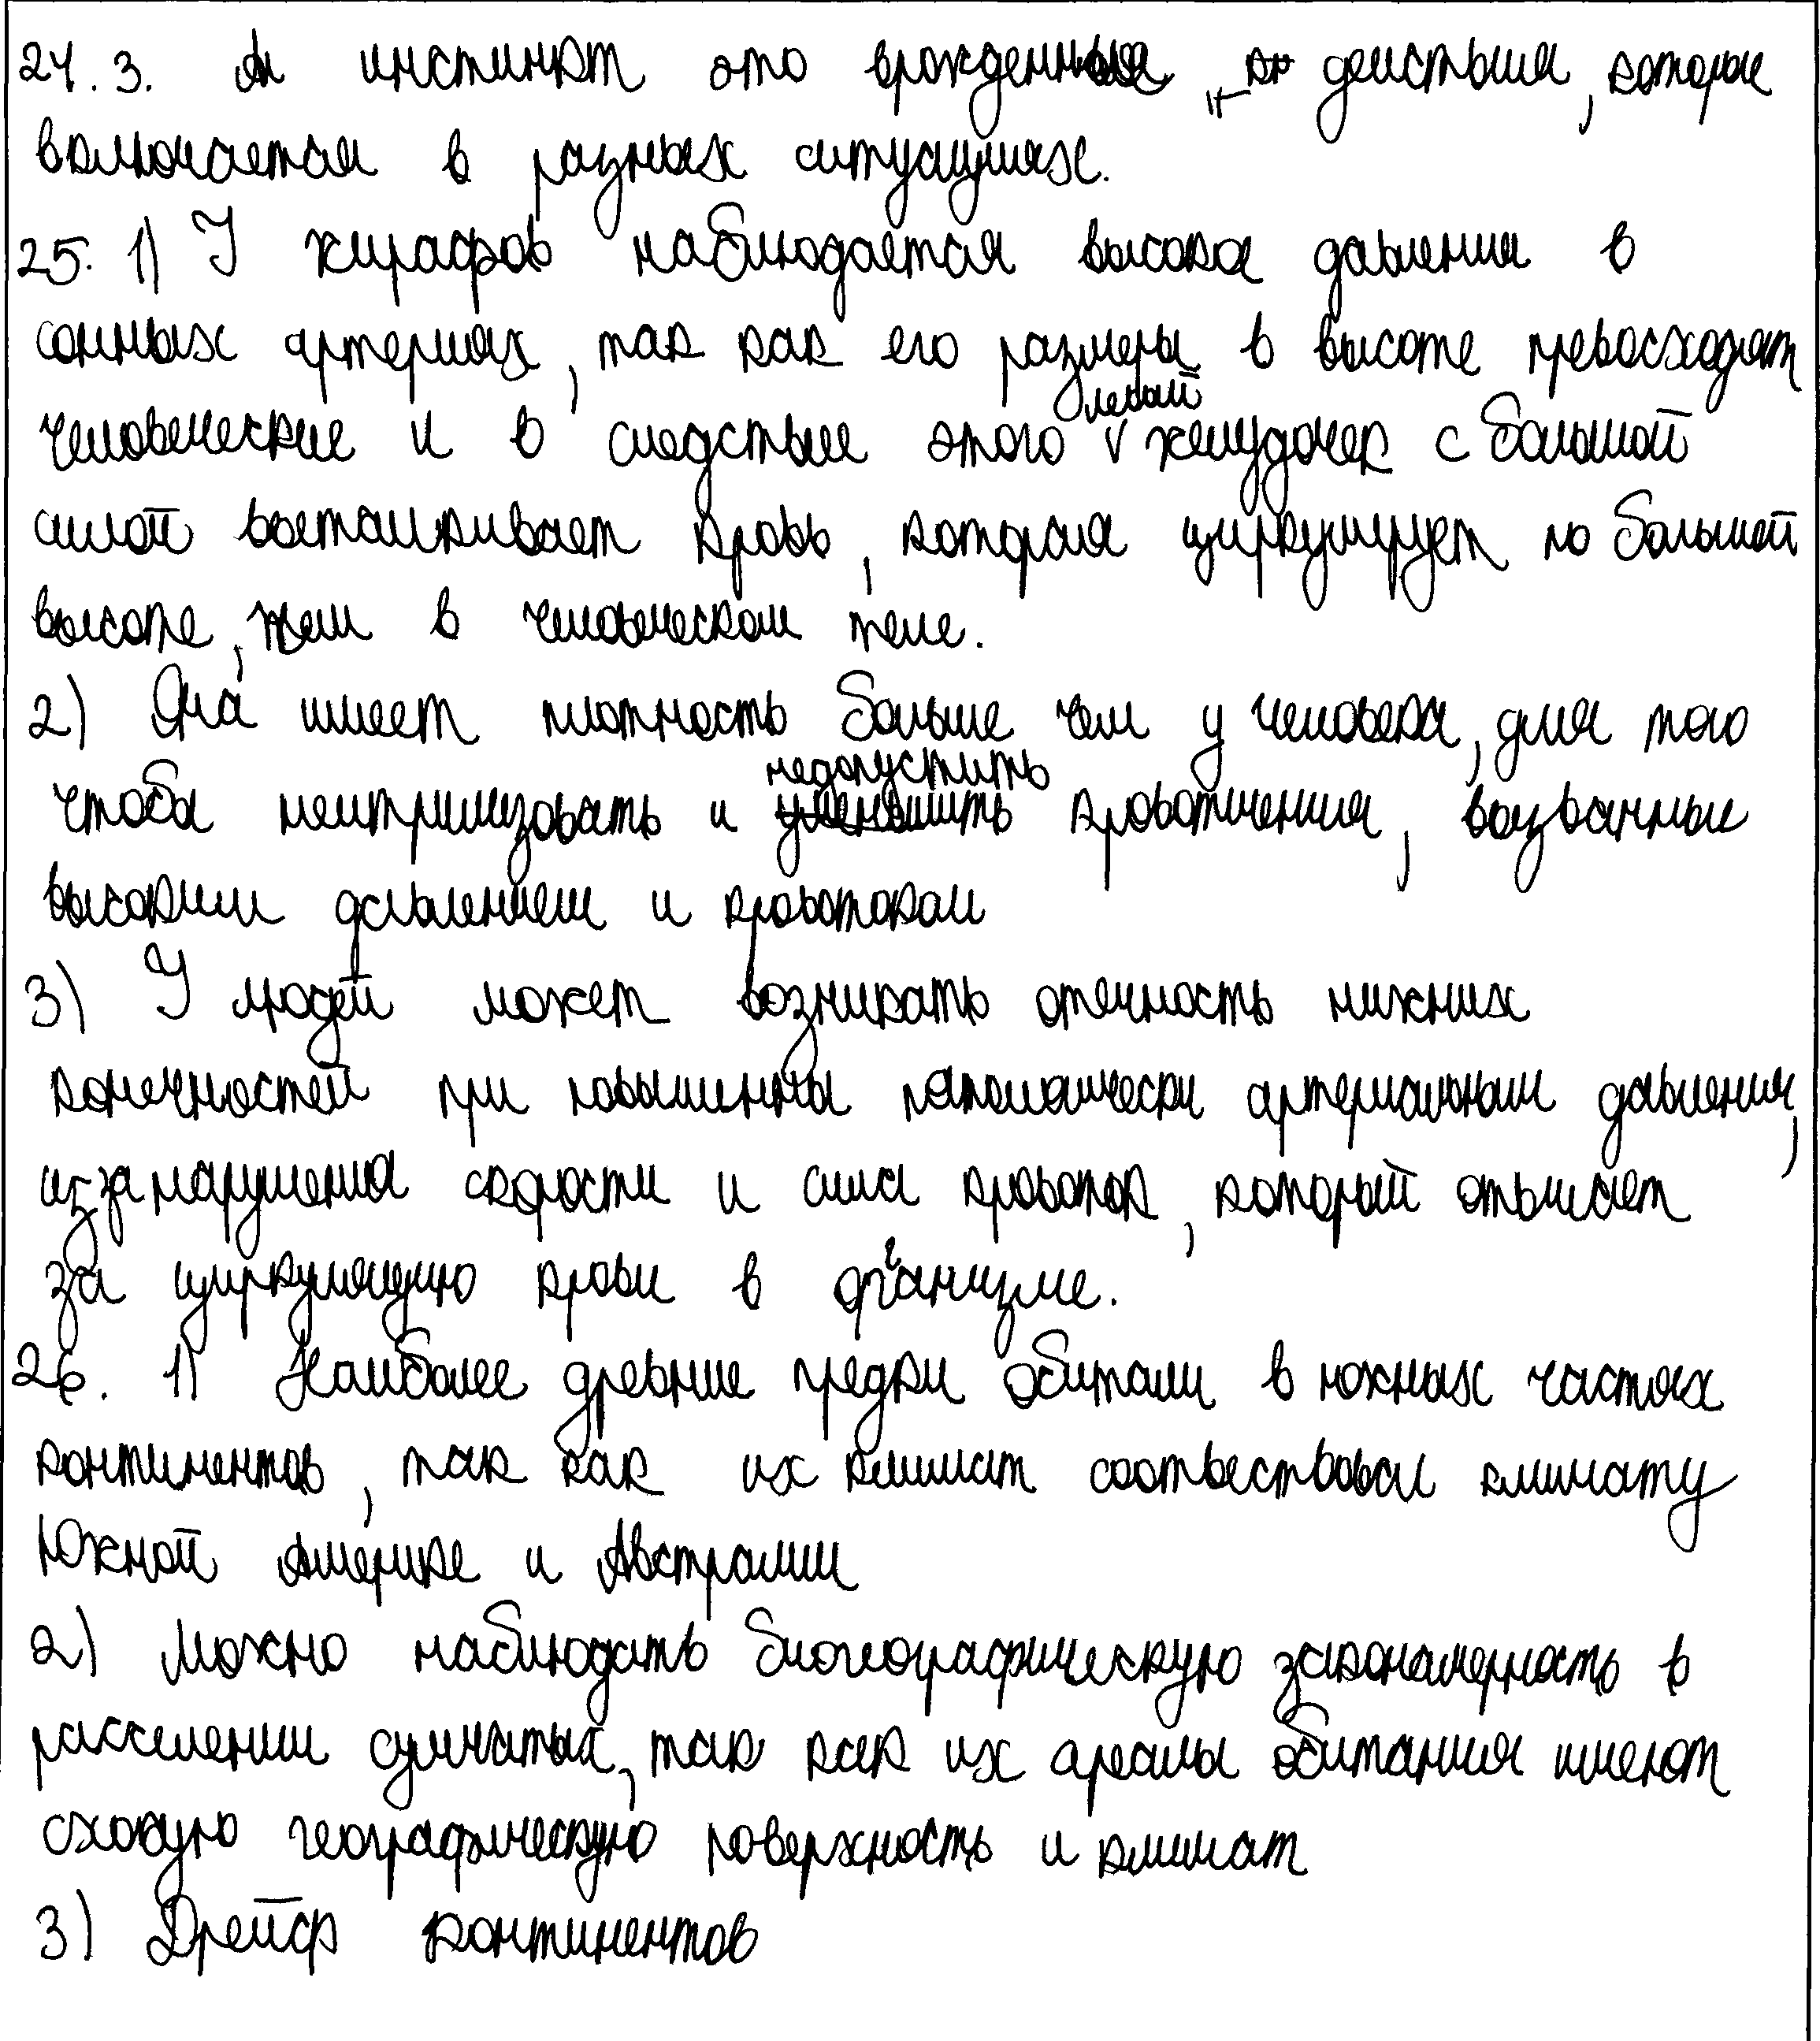 24.3. А инстинкт это врожденные действия, которые
включается в разных ситуациях.
25. 1) У жирафов наблюдается высокое давления в
сонных артериях, так как его размеры в высоте превосходят
человеческие и в следствие этого левый желудочек с большой
силой выталкивает кровь, которая циркулирует по большей
высоте, чем в человеческом теле.
2) Она имеет плотность больше чем у человека, для того
чтобы нейтрализовать и недопустить кровотичения, вызванные
высоким давлением и кровотоком
3) У людей может возникать отечность нижних
конечностей при повышенны патологически артериальном давлении,
из за нарушения скорости и силы кровоток, который отвечает
за циркуляцию крови в организме.
26. 1) Наиболее древние предки обитали в южных частях
континентов, так как их климат соответствовал климату
Южной Америке и Австралии
2) Можно наблюдать биогеографическую закономерность в
расселении сумчатых, так как их ареалы обитания имеют
схожую географическую поверхность и климат
3) Дрейф континентов